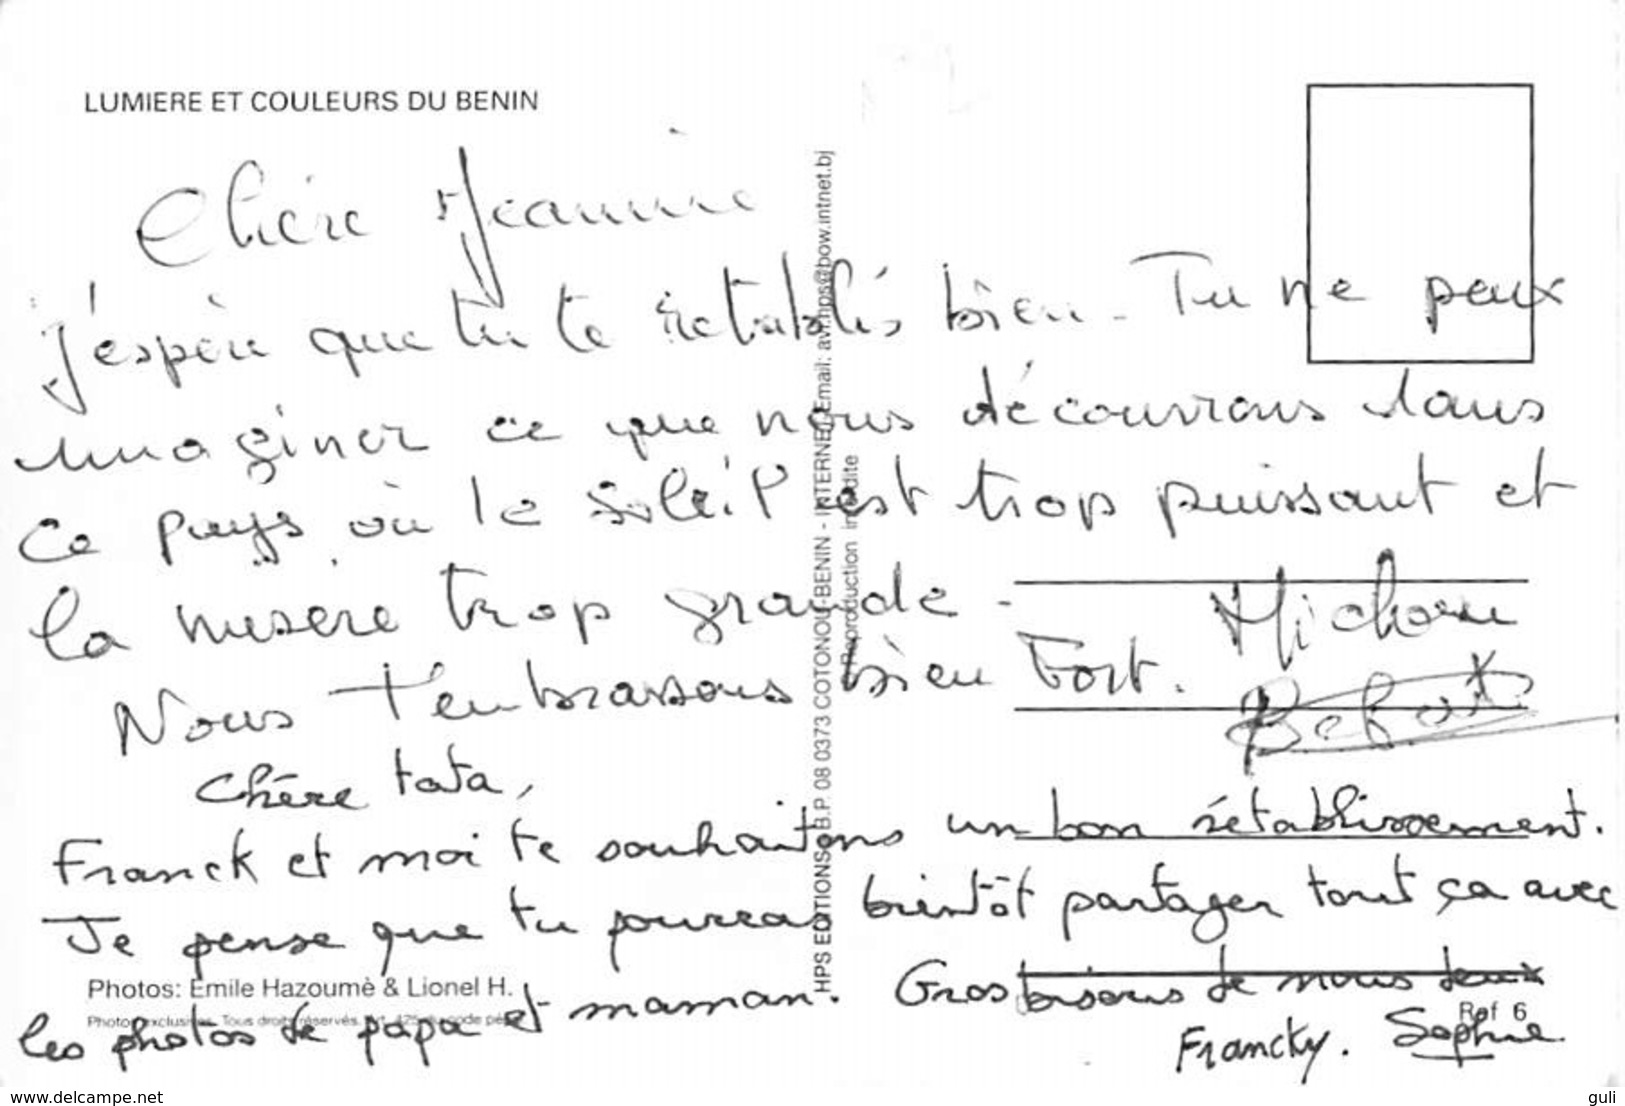 LUMIERE ET COULEURS DU BENIN
Chère Jeannine
J'espère que tu te rétablis bien - Tu ne peux
imaginer ce que nous découvrons dans
ce pays où le soleil est trop puissant et
la misère trop grande -
Nous t'embrassons bien fort.
Chère tata,
Franck et moi te souhaitons un bon rétablissement.
Je pense que tu pourras bientôt partager tout ça avec
les photos de papa et maman. Gros bisous de nous deux
Francky. Sophie
HPS EDITIONS B.P. 08 0373 COTONOU-BENIN - INTERNET Email: avt.hps@bow.intnet.bj
Reproduction interdite
Photos: Emile Hazoumè & Lionel H.
Photos exclusives. Tous droits réservés. Art. 425 du code
Ref 6
www.delcampe.net
guli